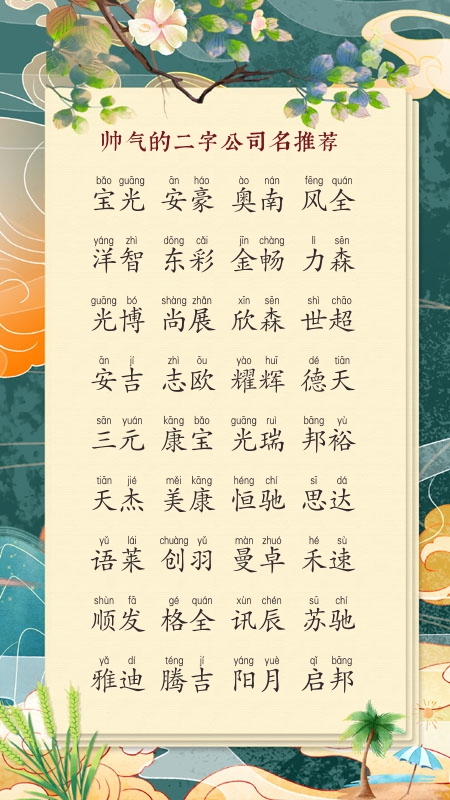 帅气的二字公司名推荐
bǎo guāng ān háo ào nán fēng quán
宝光 安豪 奥南 风全
yáng zhì dōng cǎi jīn chàng lì sēn
洋智 东彩 金畅 力森
guāng bó shàng zhǎn xīn sēn shì chāo
光博 尚展 欣森 世超
ān jí zhì ōu yào huī dé tiān
安吉 志欧 耀辉 德天
sān yuán kāng bǎo guāng ruì bāng yù
三元 康宝 光瑞 邦裕
tiān jié měi kāng héng chí sī dá
天杰 美康 恒驰 思达
yǔ lái chuàng yǔ màn zhuó hé sù
语莱 创羽 曼卓 禾速
shùn fā gé quán xùn chén sū chí
顺发 格全 讯辰 苏驰
yǎ dí téng jí yáng yuè qǐ bāng
雅迪 腾吉 阳月 启邦